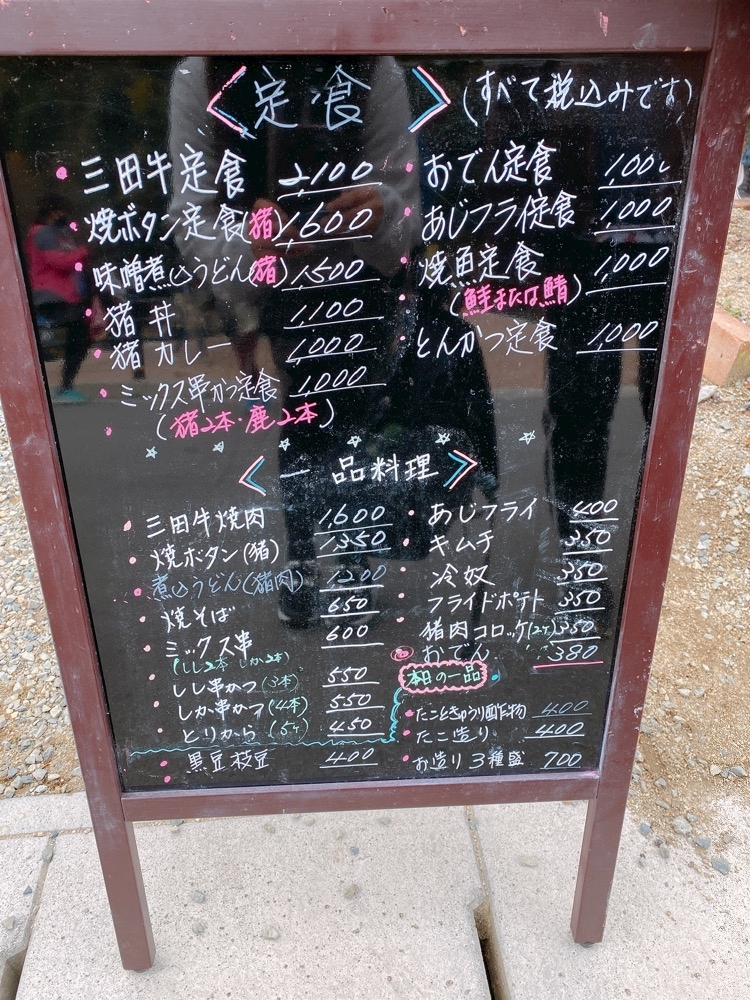 定食 (すべて税込みです)
三田牛定食 2,100
焼ボタン定食(猪) 1,600
味噌煮込うどん(猪) 1,500
猪丼 1,100
猪カレー 1,000
ミックス串かつ定食 1,000
(猪2本・鹿2本)
おでん定食 1,000
あじフライ定食 1,000
焼魚定食 1,000
(鮭または鯖)
とんかつ定食 1,000
一品料理
三田牛焼肉 1,600
焼ボタン(猪) 1,350
煮込うどん(猪肉) 1200
焼そば 650
ミックス串 600
(しし2本 しか2本)
しし串かつ(3本) 550
しか串かつ(4本) 550
とりから(5ヶ) 450
黒豆枝豆 400
あじフライ 400
キムチ 350
冷奴 350
フライドポテト 350
猪肉コロッケ(2ヶ) 350
おでん 380
本日の一品
たこときゅうり酢作物 400
たこ造り 400
お造り3種盛 700